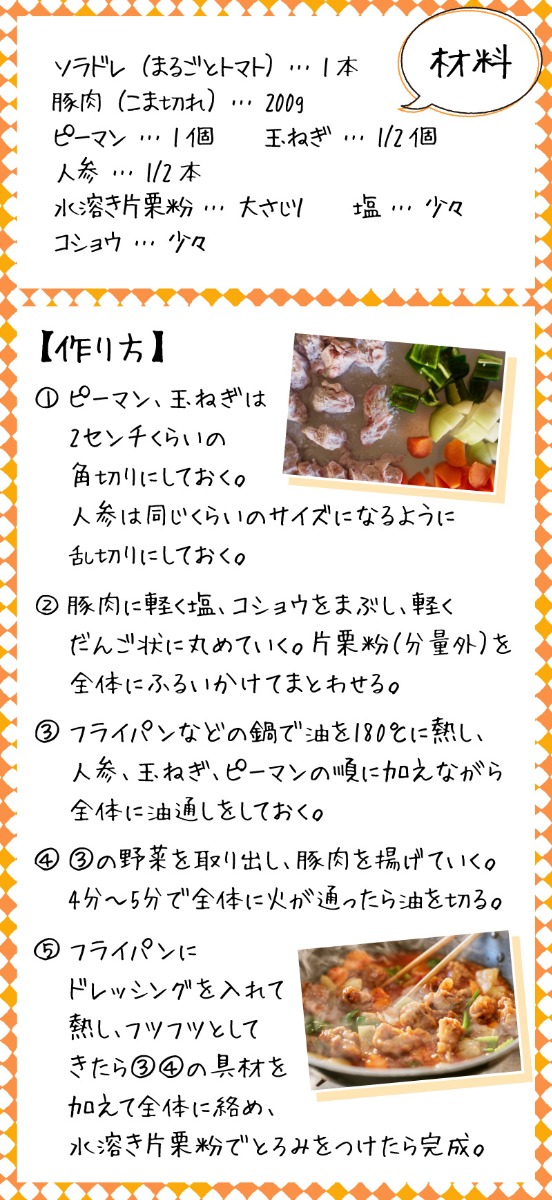 材料
ソラドレ（まるごとトマト）… 1本
豚肉（こま切れ）… 200g
ピーマン … 1個　玉ねぎ … 1/2個
人参 … 1/2本
水溶き片栗粉 … 大さじ1　塩 … 少々
コショウ … 少々
【作り方】
① ピーマン、玉ねぎは
2センチくらいの
角切りにしておく。
人参は同じくらいのサイズになるように
乱切りにしておく。
② 豚肉に軽く塩、コショウをまぶし、軽く
だんご状に丸めていく。片栗粉(分量外)を
全体にふるいかけてまとわせる。
③ フライパンなどの鍋で油を180℃に熱し、
人参、玉ねぎ、ピーマンの順に加えながら
全体に油通しをしておく。
④ ③の野菜を取り出し、豚肉を揚げていく。
4分〜5分で全体に火が通ったら油を切る。
⑤ フライパンに
ドレッシングを入れて
熱し、フツフツとして
きたら③④の具材を
加えて全体に絡め、
水溶き片栗粉でとろみをつけたら完成。